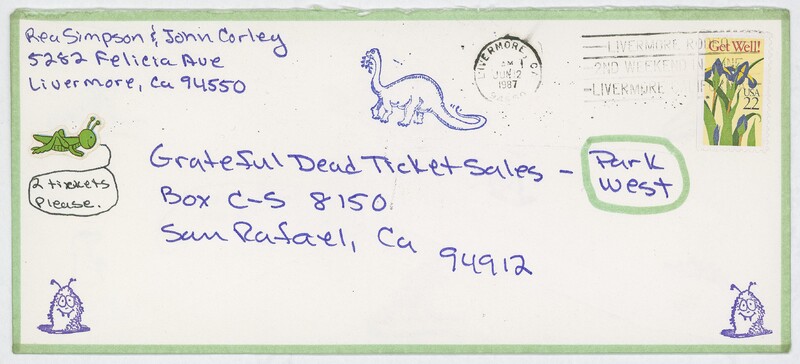 Rea Simpson & John Corley
5282 Felicia Ave
Livermore, Ca 94550
LIVERMORE, CA
AM
JUN 2
1987
LIVERMORE
2ND WEEKEND IN
LIVERMORE
Get Well!
USA
22
2 tickets
please.
Grateful Dead Ticket Sales – Park West
Box C-S 8150
San Rafael, Ca
94912